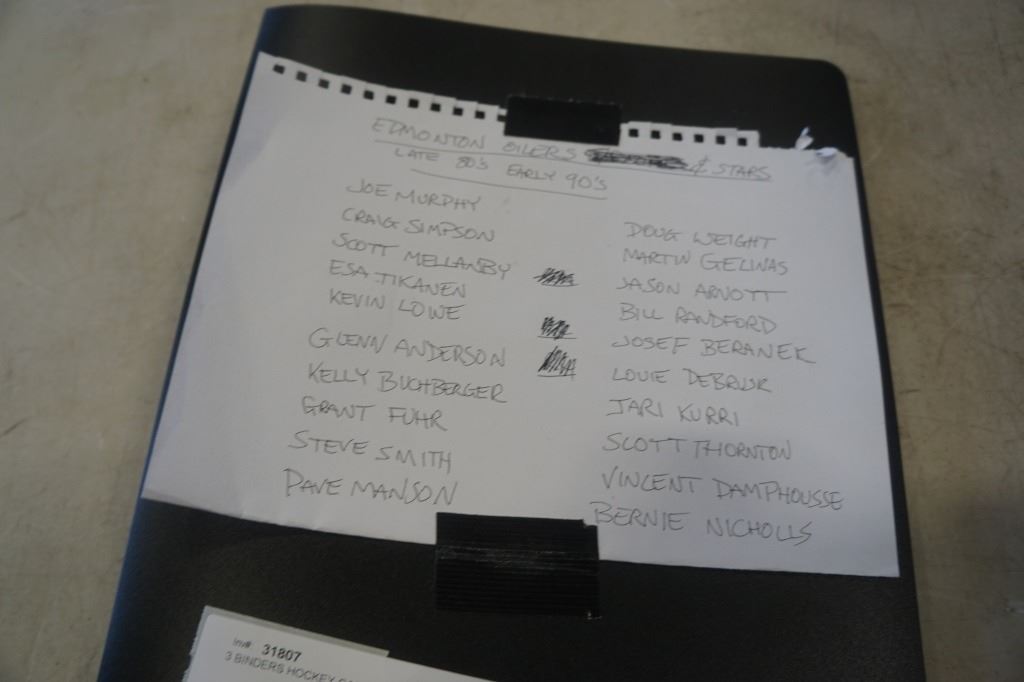 EDMONTON OILERS & STARS
LATE 80'S EARLY 90'S
JOE MURPHY
CRAIG SIMPSON
SCOTT MELLANBY
ESA TIKANEN
KEVIN LOWE
GLENN ANDERSON
KELLY BUCHBERGER
GRANT FUHR
STEVE SMITH
DAVE MANSON
DOUG WEIGHT
MARTIN GELINAS
JASON ARNOTT
BILL RANDFORD
JOSEF BERANEK
LOUIE DEBRUSK
JARI KURRI
SCOTT THORNTON
VINCENT DAMPHOUSSE
BERNIE NICHOLLS
Inv# 31807
3 BINDERS HOCKEY